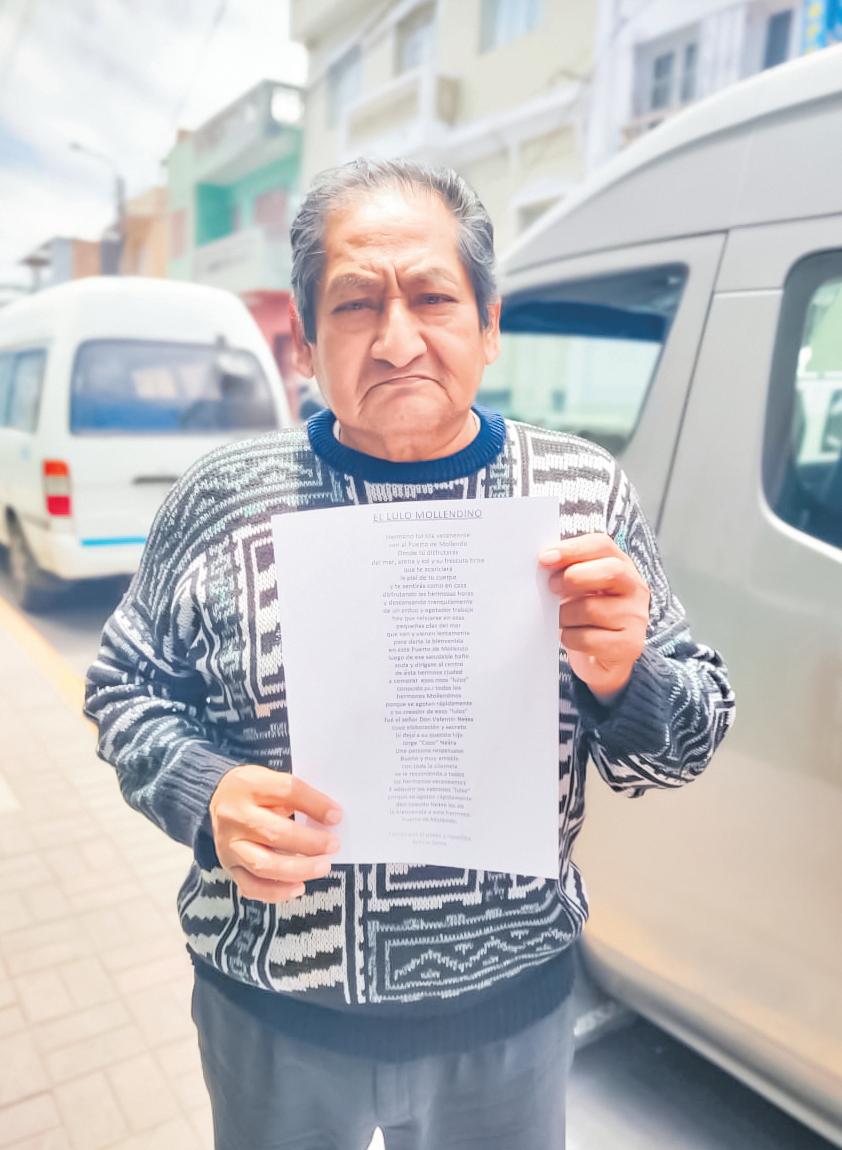 EL LULO MOLLENDINO
Hermano turista veraneante
ven al Puerto de Mollendo
Donde tú disfrutarás
del mar, arena y sol y su frescura firme
que te acariciará
la piel de tu cuerpo
y te sentirás como en casa
disfrutando las hermosas horas
y descansando tranquilamente
de un arduo y agotador trabajo
hay que relajarse en esas
pequeñas olas del mar
que van y vienen lentamente
para darte la bienvenida
en este Puerto de Mollendo
luego de ese saludable baño
anda y dirígete al centro
de ésta hermosa ciudad
a comprar esos ricos "lulos"
conocido por todos los
hermanos Mollendinos
porque se agotan rápidamente
y su creador de esos "lulos"
fué el señor Don Valentín Neira
cuya elaboración y secreto
lo dejó a su querido hijo
Jorge "Coco" Neira
Una persona respetuosa
Bueno y muy amable
con toda la clientela
se le recomienda a todos
los hermanos veraneantes
a adquirir los sabrosos "lulos"
porque se agotan rápidamente
don Neira les da
la bienvenida a este hermoso
Puerto de Mollendo.